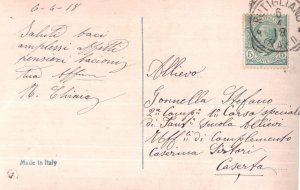 6-4-18
Saluti baci
amplessi affetti
pensieri bacioni
tua
N. Chiara
Made in Italy
Allievo
Gonnella Stefano
2a Compa 1o Corso speciale
di Scuola Allievi
Uffli di Complemento
Caserma
Caserta